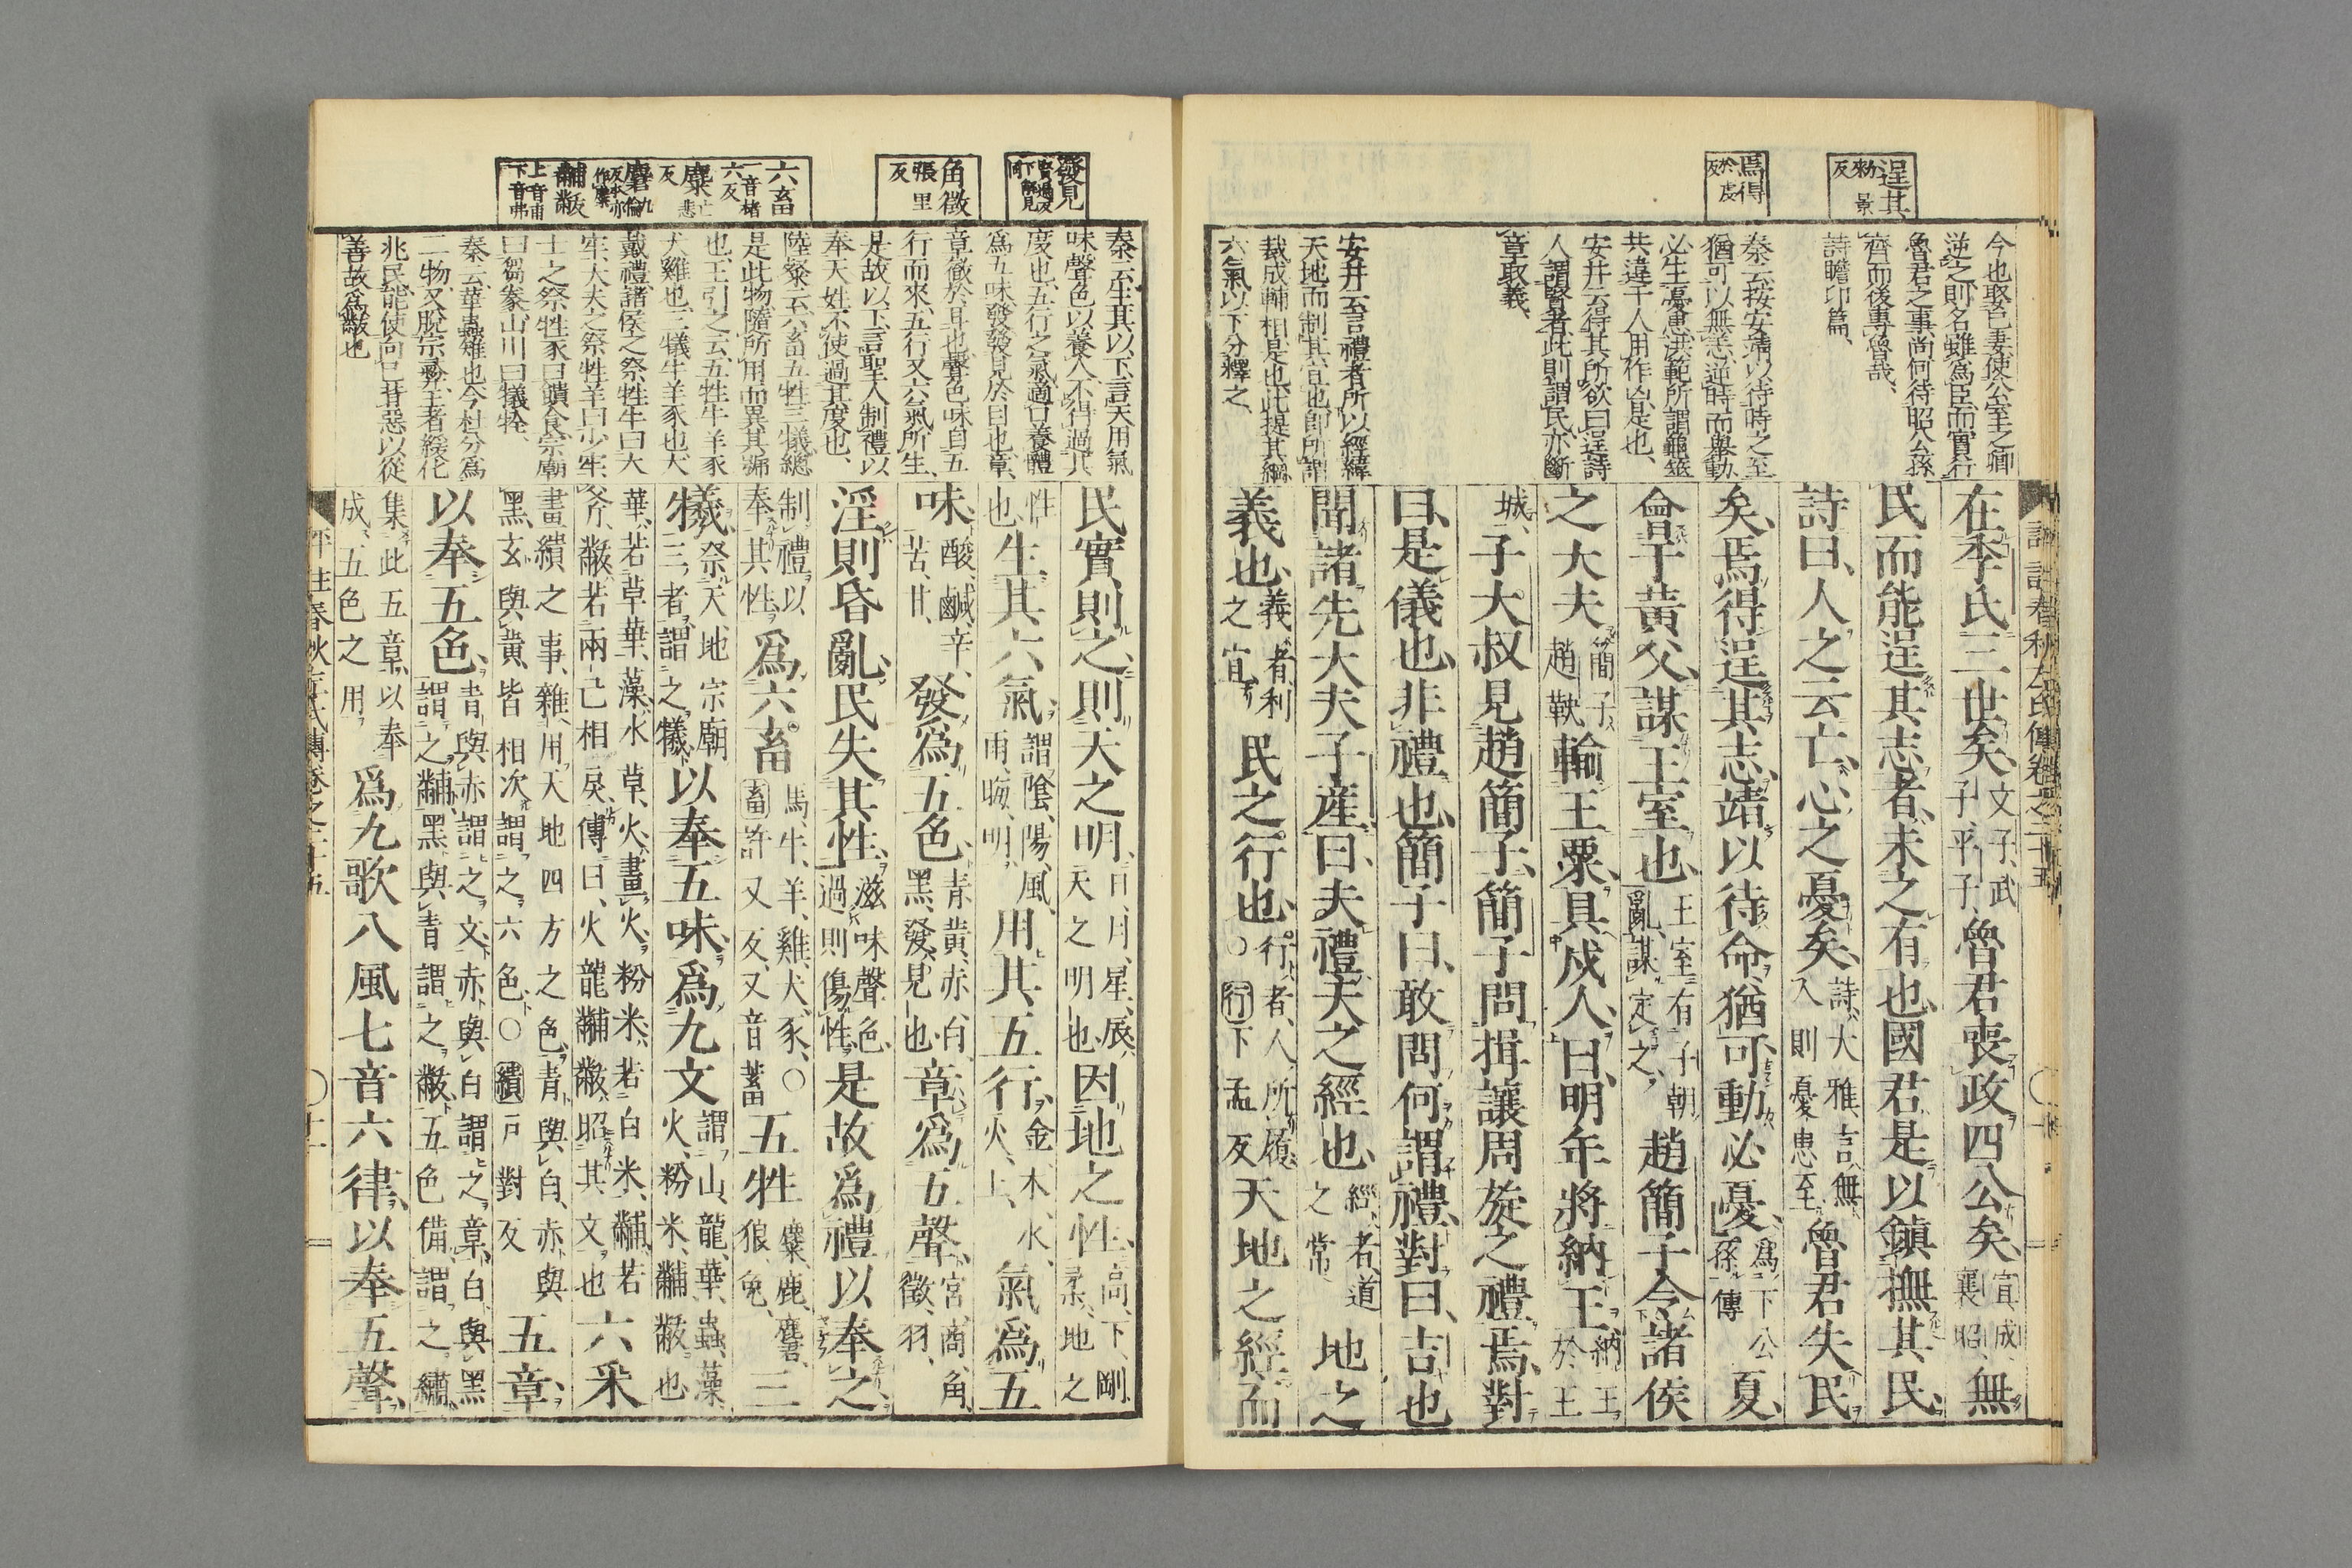 逞其
敕景
反
焉得
於虔
反
今也取邑妻使公室之卿
逆之則名雖爲臣而實行
魯君之事尚何待昭公孫
齊而後專魯哉
詩瞻卬篇
秦云按安靖以待時之至
猶可以無恙逆時而舉動
必生憂患洪範所謂龜筮
共違于人用作凶是也
安井云得其所欲曰逞詩
人謂賢者此則謂民亦斷
章取義
安井云言禮者所以經緯
天地而制其宜也即所謂
裁成輔相是也此提其綱
六氣以下分釋之
在季氏三世矣文子武子平子魯君喪政四公矣宣成襄昭無
民而能逞其志者未之有也國君是以鎮撫其民
詩曰人之云亡心之憂矣詩大雅言無人則憂患至魯君失民
矣焉得逞其志靖以待命猶可動必憂爲下公孫傳夏
會于黃父謀王室也王室有子朝亂謀定之趙簡子令諸侯
之大夫簡子趙鞅輸王粟具戍人曰明年將納王納王於王
城子大叔見趙簡子簡子問揖讓周旋之禮焉對
曰是儀也非禮也簡子曰敢問何謂禮對曰吉也
聞諸先大夫子產曰夫禮天之經也經者道之常地之
義也義者利之宜民之行也行者人所履○行下孟反天地之經而
發見
賢遍反
下解見
同
角徵
張里
反
六畜
音楮
六反
麋亡悲
反
麏九倫
反本亦
作麇
黼黻
上音甫
下音弗
秦云生其以下言天用氣
味聲色以養人不得過其
度也五行之氣適口養體
爲五味發發見於目也章
章徹於耳也聲色味自五
行而來五行又六氣所生
是故以下言聖人制禮以
奉天姓不使過其度也
陸粲云六畜五牲三犧總
是此物隨所用而異其號
也王引之云五牲牛羊豕
犬雞也三犧牛羊豕也大
戴禮諸侯之祭牲牛曰大
牢大夫之祭牲羊曰少牢
士之祭牲豕曰饋食宗廟
曰芻豢山川曰犧牷
秦云華蟲雉也今杜分爲
二物又脫宗彝王者緩化
兆民能使向已背惡以從
善故爲黻也
民實則之則天之明日月星辰天之明也因地之性高下剛柔地之
性也生其六氣謂陰陽風雨晦明用其五行金木水火土氣爲五
味酸鹹辛苦甘發爲五色青黃赤白黑發見也章爲五聲宮商角徵羽
淫則昏亂民失其性滋味聲色過則傷性是故爲禮以奉之
制禮以奉其性爲六畜馬牛羊雞犬豕○畜許又反又音蓄五牲麋鹿麏狼兔三
犧祭天地宗廟三者謂之犧以奉五味爲九文謂山龍華蟲藻火粉米黼黻也
華若草華藻水草火畫火粉米若白米黼若斧黻若兩己相戾傳曰火龍黼黻昭其文也六采
畫繢之事雜用天地四方之色青與白赤與黑玄與黃皆相次謂之六色○繢戶對反五章
以奉五色青與赤謂之文赤與白謂之章白與黑謂之黼黑與青謂之黻五色備謂之繡
集此五章以奉成五色之用爲九歌八風七音六律以奉五聲